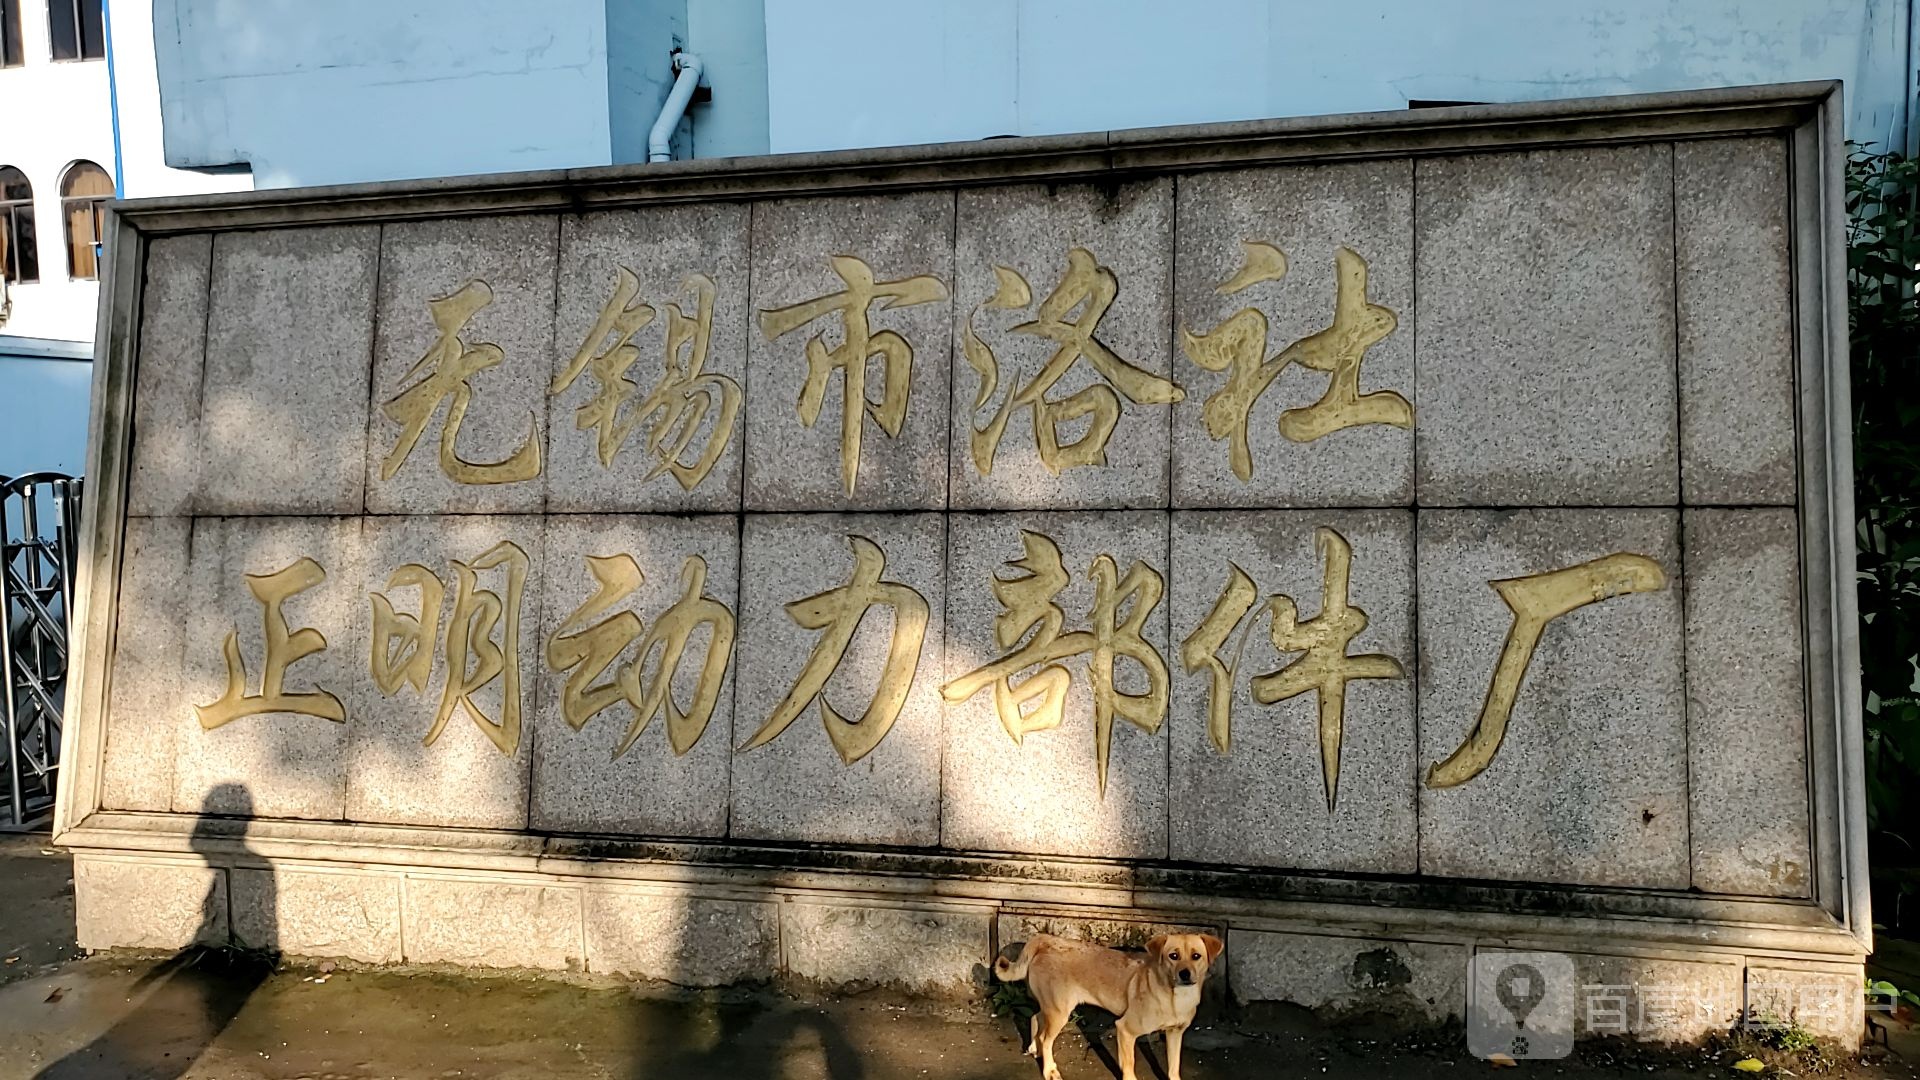 无锡市洛社
正明动力部件厂
百度地图用户